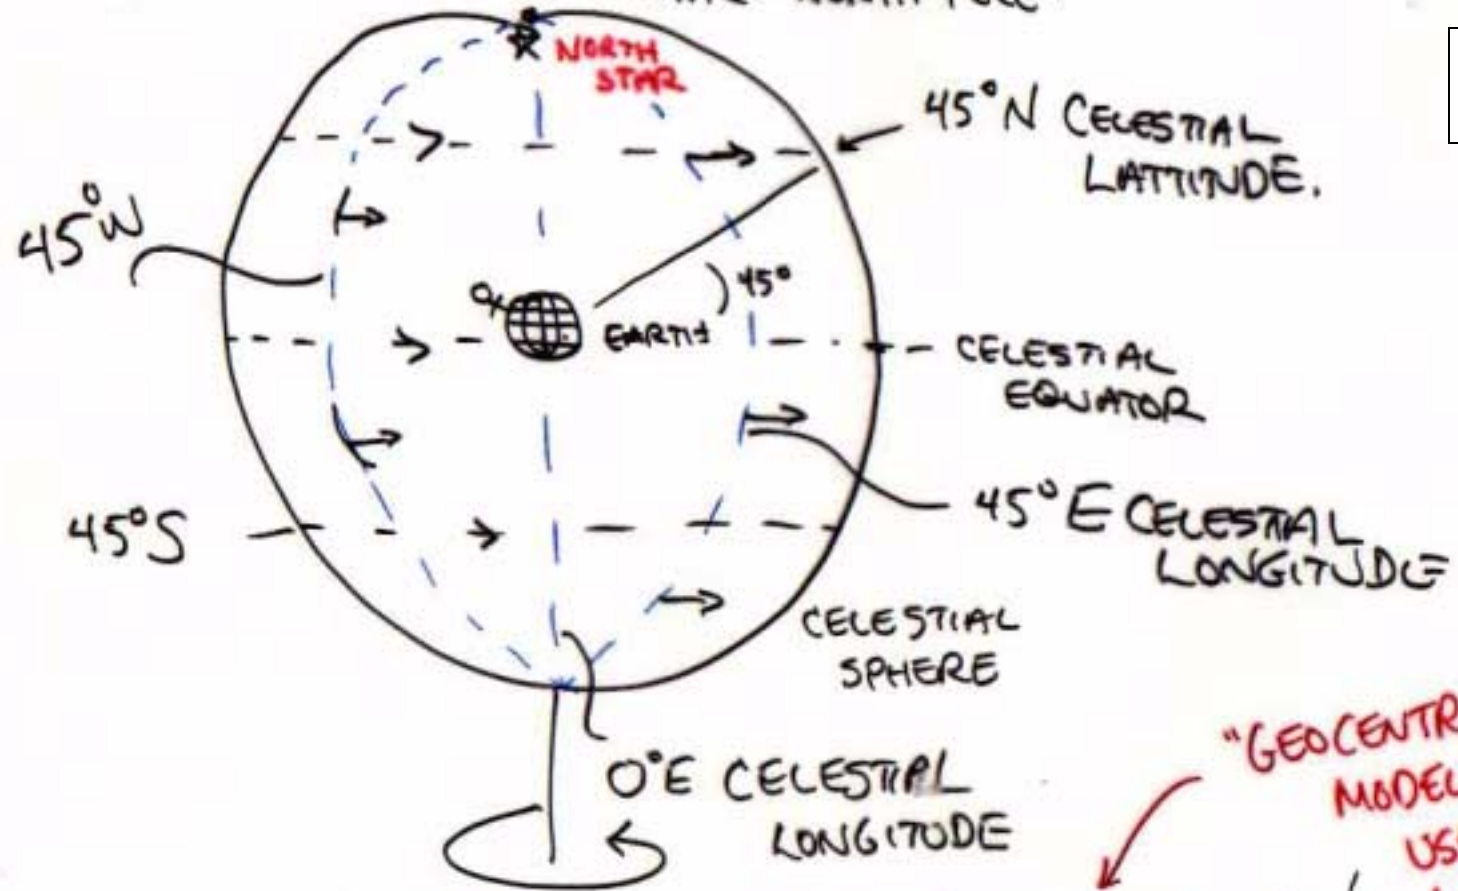 NORTH
STAR
45°N CELESTIAL
LATTITUDE.
45°W
45°
EARTH
CELESTIAL
EQUATOR
45°E CELESTIAL
LONGITUDE
45°S
CELESTIAL
SPHERE
0°E CELESTIAL
LONGITUDE
"GEOCENTR
MODEL
US